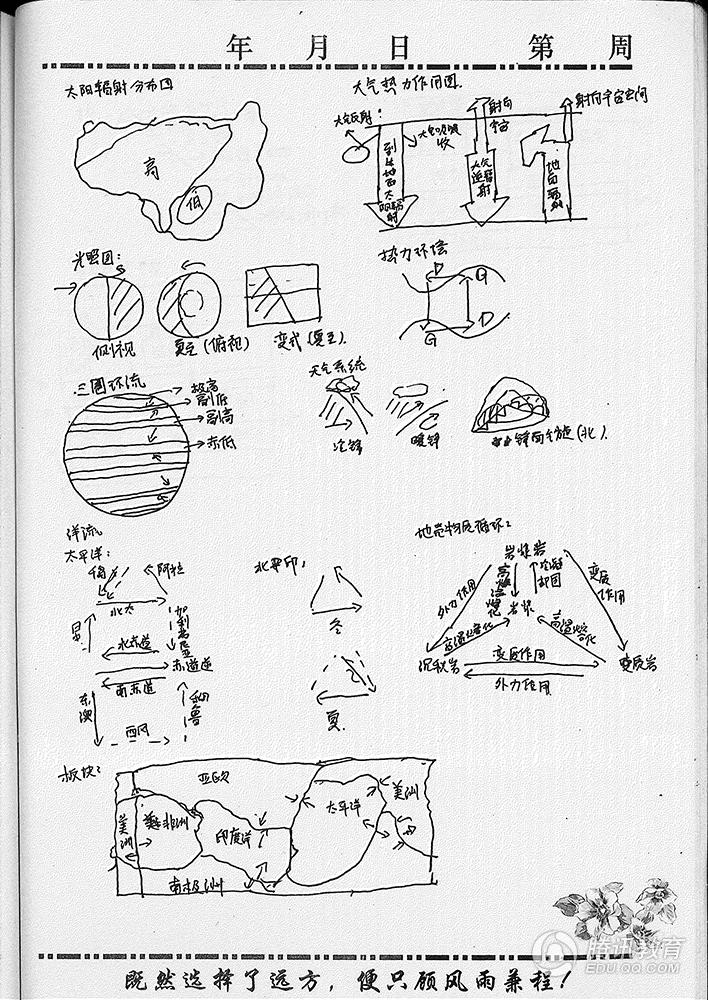 年 月 日 第 周
太阳辐射分布图
大气热力作用图
高
低
大气反射
大气吸收
到达地面太阳辐射
射向宇宙
大气逆辐射
射向宇宙空间
地面辐射
光照图:
侧视
夏至(俯视)
变式(夏至).
热力环流
D G
G D
三圈环流
极高
副低
副高
赤低
天气系统
冷锋
暖锋
锋面气旋(北).
洋流
太平洋:
阿拉
北太
加利福尼亚
日本
北赤道
赤道逆
南赤道
东澳
秘鲁
西风
北印:
冬
夏.
地壳物质循环:
岩浆岩
外力作用
高温熔化
冷凝
变质作用
岩浆
高温熔化
高温熔化
沉积岩
变质作用
变质岩
外力作用
板块:
亚欧
美洲
非洲
印度洋
太平洋
美洲
南极洲
腾讯教育
EDU.QQ.COM
既然选择了远方,便只顾风雨兼程!